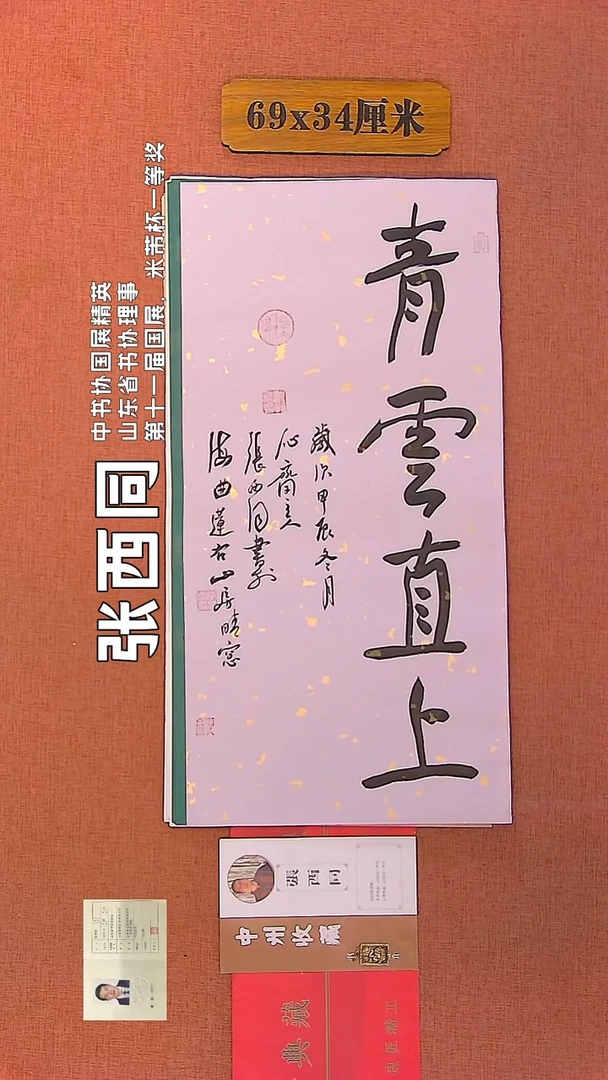 69x34厘米
青雲直上
歲次甲辰冬月
心齋主人
張西同書於
海曲蓮右山房晴窓
张西同
中书协国展精英
山东省书协理事
第十一届国展，米芾杯一等奖
張西同
中州收藏
典藏
良匠精工